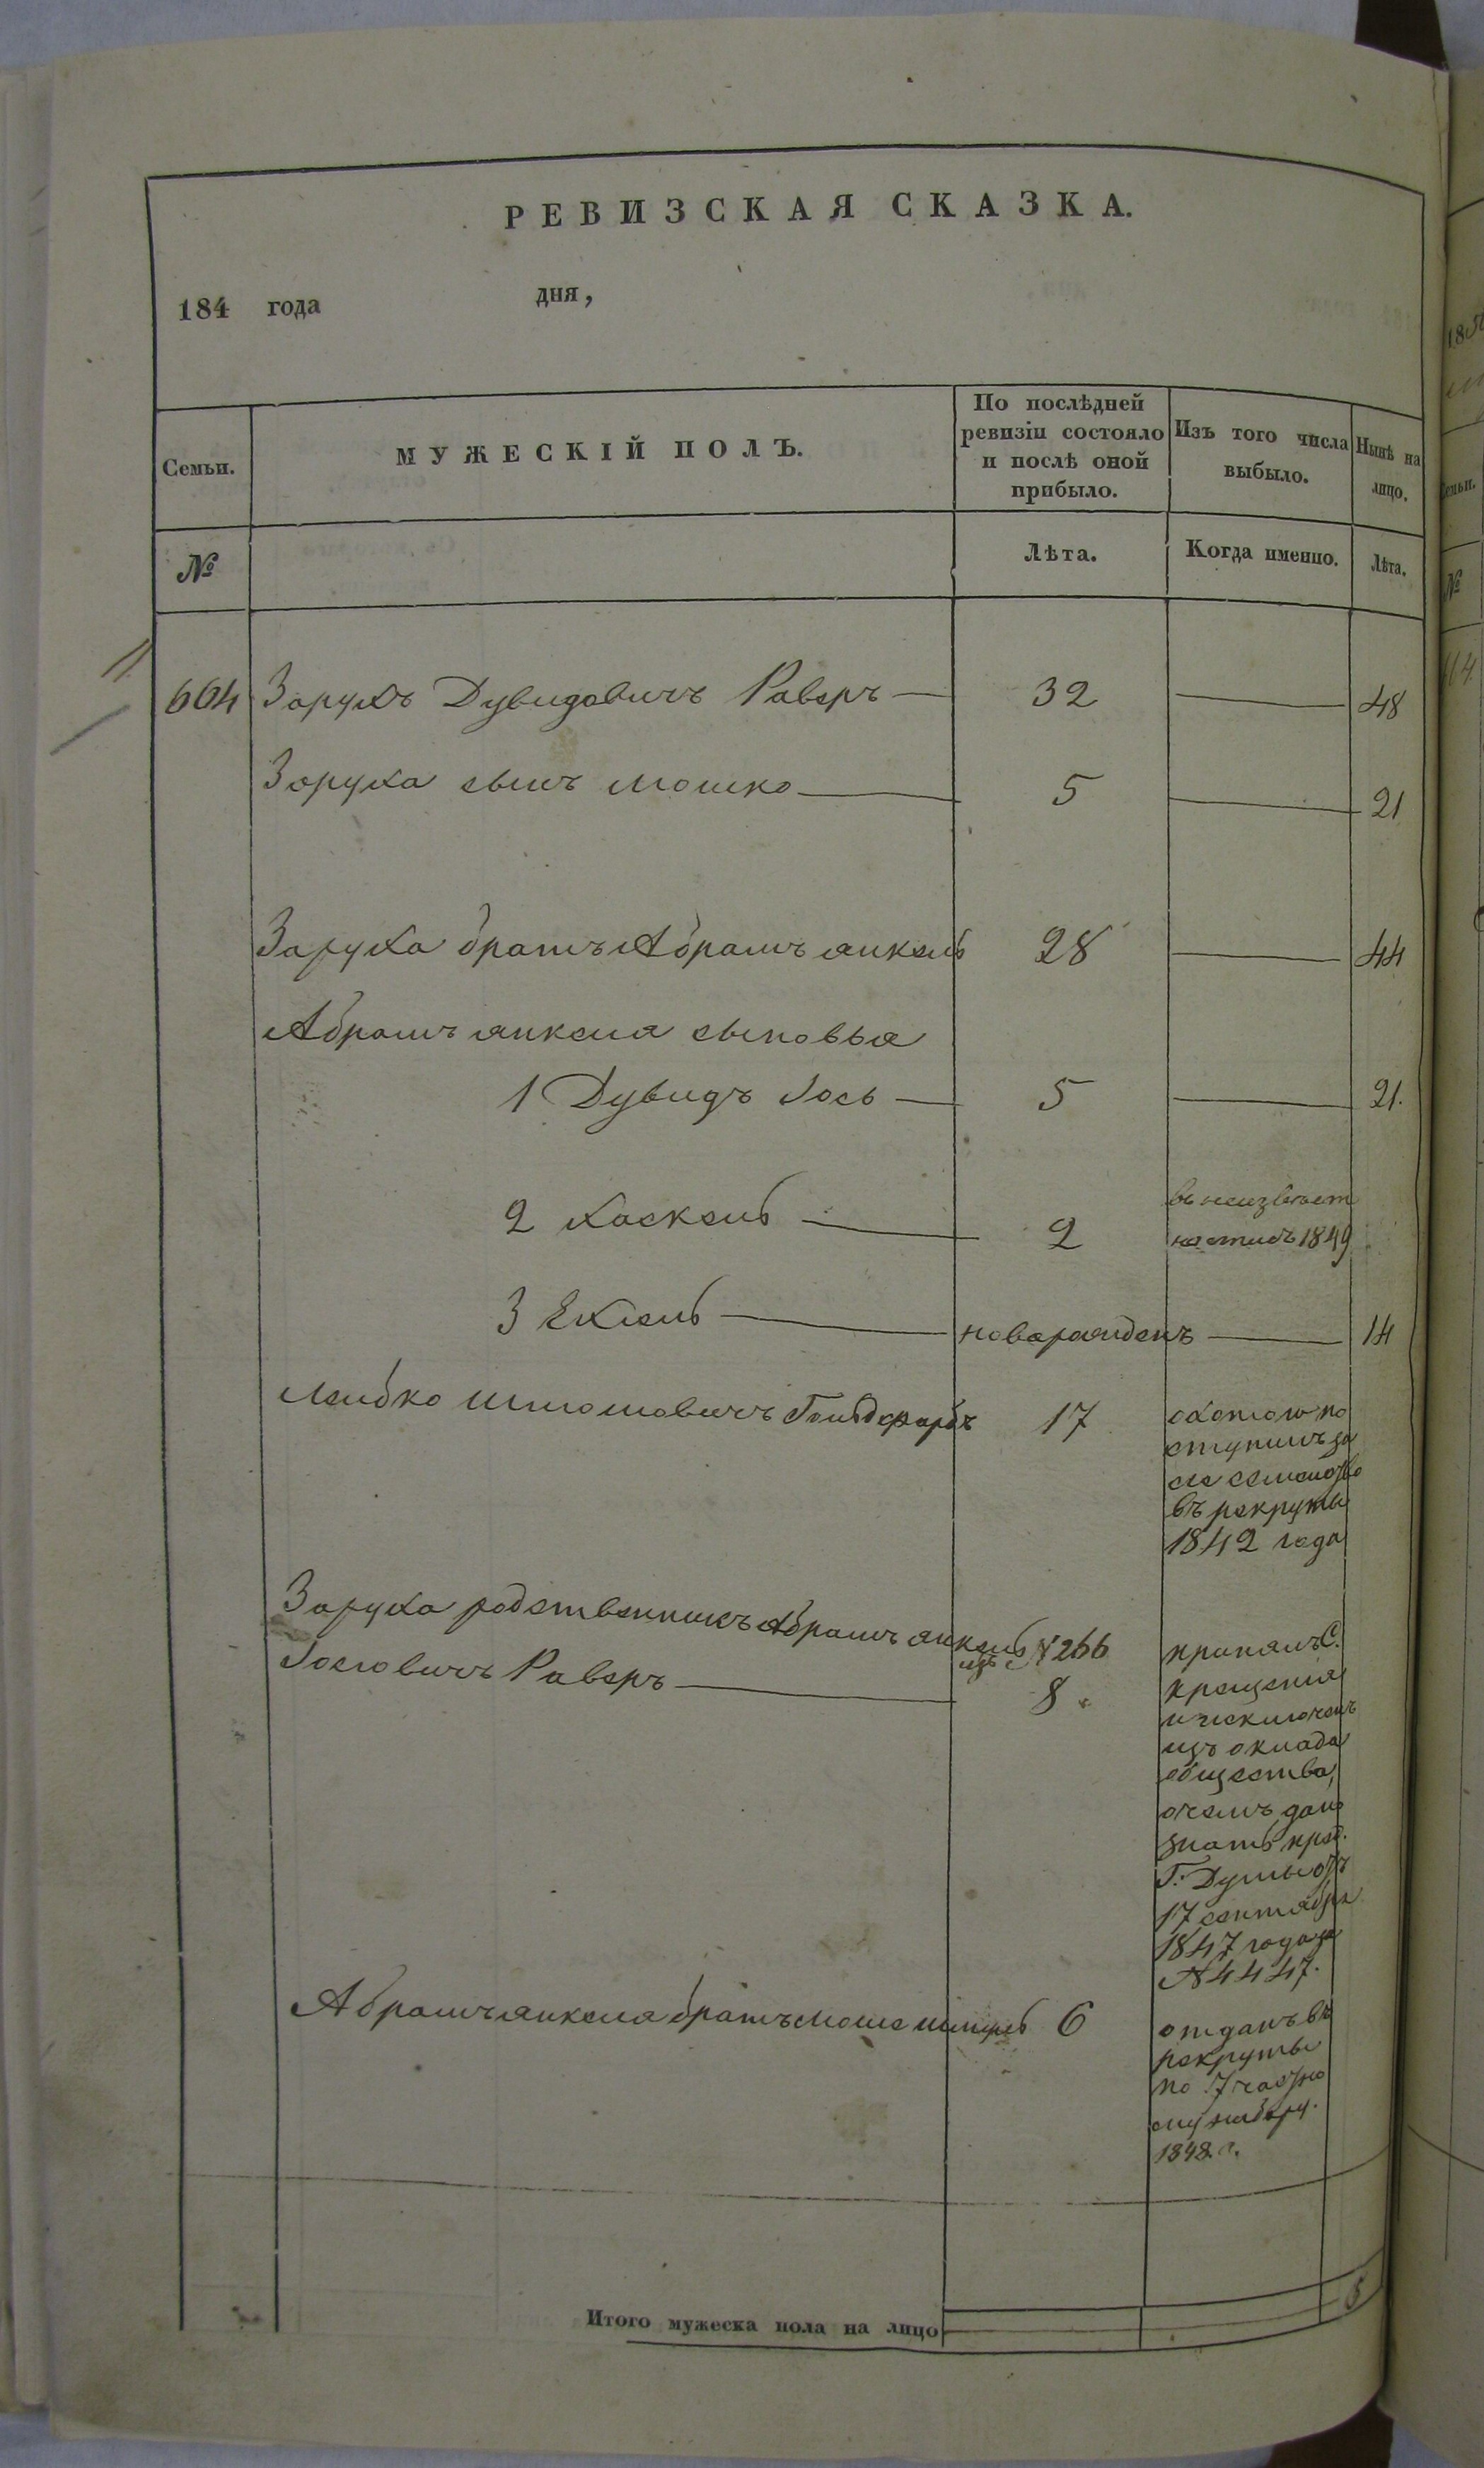 РЕВИЗСКАЯ СКАЗКА.
184 года дня,
Семьи.
МУЖЕСКІЙ ПОЛЪ.
По послѣдней
ревизіи состояло
и послѣ оной
прибыло.
Изъ того числа
выбыло.
Нынѣ на
лицо.
№
Лѣта.
Когда именно.
Лѣта.
604 Зарухъ Дувидовичъ Раверъ — 32 — 48
Заруха сынъ Мошко — 5 — 21
Заруха братъ Абрамъ Янкель 28 — 44
Абрамъ Янкеля сыновья
1 Дувидъ Іось — 5 — 21.
2 Хаскель — 2
въ неизвѣст
ности съ 1849
3 Ехіель — новорожденъ — 14
Лейбко Шлюмовичъ Гольдфарбъ 17
охотою по
ступилъ за
се семейство
въ рекруты
1842 года
Заруха родственникъ Абрамъ Янкель
изъ № 266
Іосіовичъ Раверъ — 8.
принялъ С.
крещенія
и исключенъ
изъ оклада
общества,
о чемъ дано
знать
Г. Думы отъ
17 сентября
1847 года за
№ 4447.
Абрамъ Янкеля братъ Моше 6
отданъ въ
рекруты
по 7 частно
му набору.
1848 г.
Итого мужеска пола на лицо